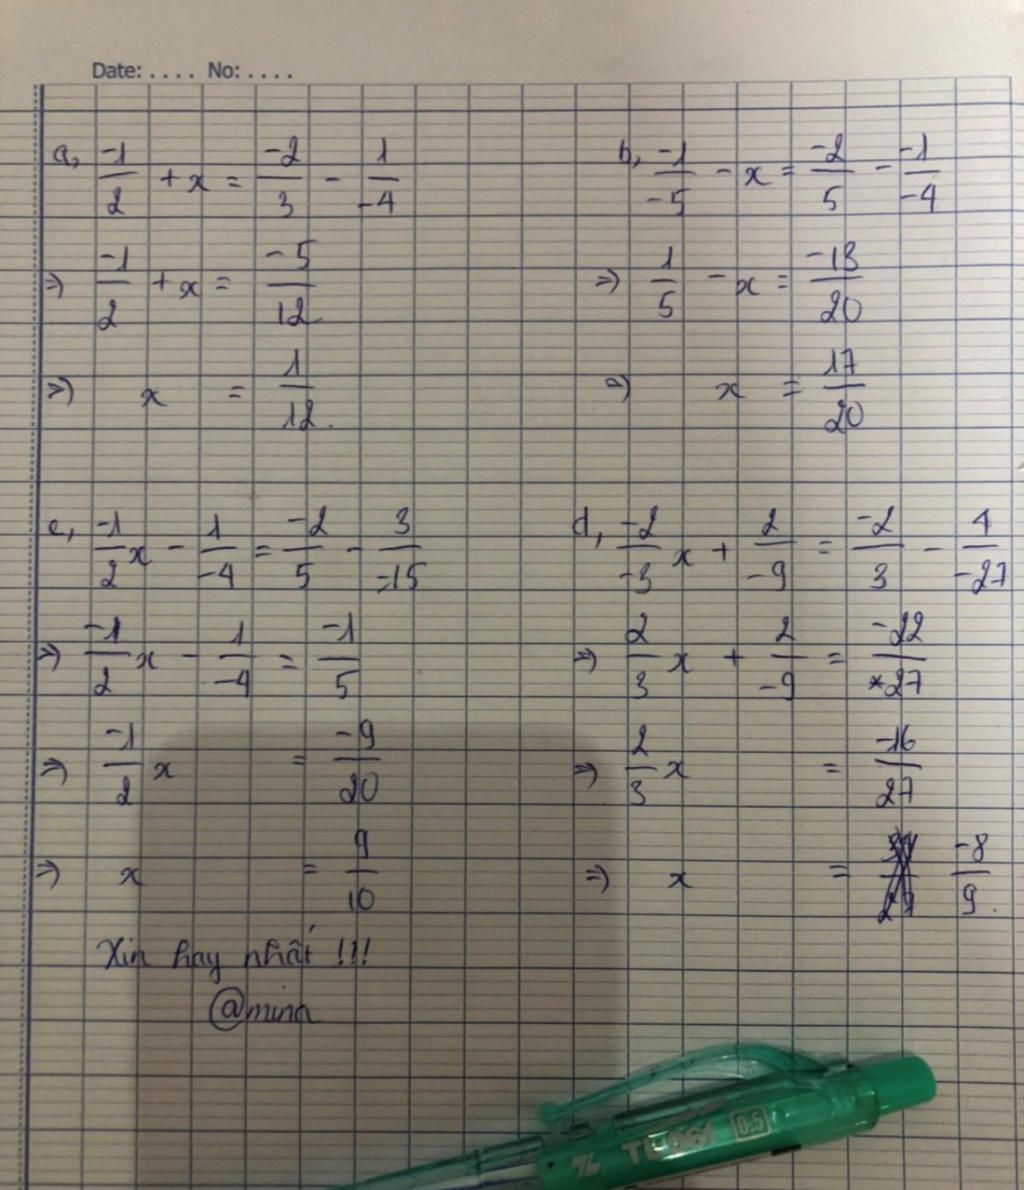 Date: .... No: ....
a, -1/2 + x = -2/3 - 1/-4
=> -1/2 + x = -5/12
=> x = 1/12.
b, -1/-5 - x = -2/5 - -1/-4
=> 1/5 - x = -13/20
=> x = 17/20
c, -1/2 x - 1/-4 = -2/5 - 3/-15
=> -1/2 x - 1/-4 = -1/5
=> -1/2 x = -9/20
=> x = 9/10
d, -2/-3 x + 2/-9 = -2/3 - 4/-27
=> 2/3 x + 2/-9 = -22/27
=> 2/3 x = -16/27
=> x = -8/9.
Xin hay nhất !!!
@mina
TL 0.5